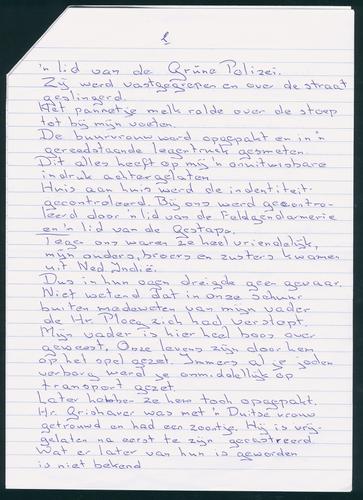 2
'n lid van de Grüne Polizei.
Zij werd vastgegrepen en over de straat
geslingerd.
Het pannetje melk rolde over de stoep
tot bij mijn voeten.
De buurvrouw werd opgepakt en in 'n
gereedstaande legertruck gesmeten.
Dit alles heeft op mij 'n onuitwisbare
indruk achtergelaten.
Huis aan huis werd de indentiteit
gecontroleerd. Bij ons werd gecontro-
leerd door 'n lid van de Feldgendarmerie
en 'n lid van de Gestapo.
Tegen ons waren ze heel vriendelijk,
mijn ouders, broers en zusters kwamen
uit Ned. Indië.
Dus in hun ogen dreigde geen gevaar.
Niet wetend dat in onze schuur
buiten medeweten van mijn vader
de Hr. Ploeg zich had verstopt.
Mijn vader is hier heel boos over
geweest. Onze levens zijn door hem
op het spel gezet. Immers al je Joden
verborg werd je onmiddelijk op
transport gezet.
Later hebben ze hem toch opgepakt.
Hr. Grishaver was met 'n Duitse vrouw
getrouwd en had een zoontje. Hij is vrij-
gelaten na eerst te zijn gecastreerd.
Wat er later van hun is geworden
is niet bekend